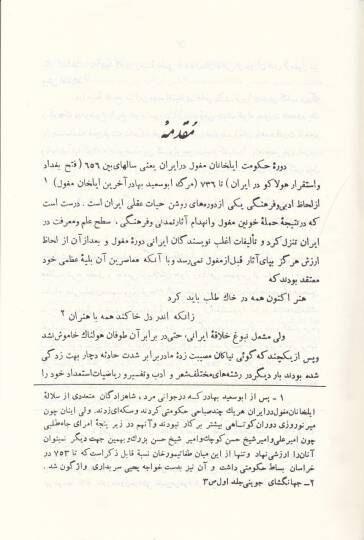 مقدمهٔ
دورهٔ حکومت ایلخانان مغول در ایران یعنی سالهای بین ۶۵۶ (فتح بغداد
واستقرار هولاکو در ایران) تا ۷۳۶ (مرگ ابوسعید بهادر آخرین ایلخان مغول) ۱
از لحاظ ادبی و فرهنگی یکی از دوره‌های روشن حیات عقلی ایران است. درست است
که در نتیجهٔ حملهٔ خونین مغول وانهدام آثار تمدنی وفرهنگی، سطح علم ومعرفت در
ایران تنزل کرد و تألیفات اغلب نویسندگان ایرانی دورهٔ مغول و بعد از آن از لحاظ
ارزش هرگز بپای آثار قبل از مغول نمی‌رسد و با آنکه معاصرین آن بلیهٔ عظمی خود
معتقد بودند که
هنر اکنون همه در خاك طلب باید کرد
زانکه اندر دل خاکند همه با هنران ۲
ولی مشعل نبوغ خلاقهٔ ایرانی، حتی در برابر آن طوفان هولناك خاموش نشد
وپس از یکچند که گوئی نیاکان مصیبت زدهٔ ما در برابر شدت حادثه دچار بهت زدگی
شده بودند بار دیگر در رشته‌های مختلف شعر و ادب وتفسیر و ریاضیات استعداد خود را
۱ – پس از ابوسعید بهادر که در جوانی مرد، شاهزادگان متعددی از سلالهٔ
ایلخانان مغول در ایران هر یك چند صباحی حکومتی کردند و سکه‌ای زدند. ولی اینان چون
میر نوروزی دوران کوتاهی بیشتر بر کار نبودند و آنهم در زیر پنجهٔ امرای جاه‌طلبی
چون امیر علی و امیر شیخ حسن کوچك و امیر شیخ حسن بزرك، و بهمین جهت دیگر نمیتوان
آنان را ارزشی نهاد و تنها از این میان طغاتیمور خان نسبة قابل ذکر است که تا ۷۵۳ در
خراسان بساط حکومتی داشت و آن نیز بدست خواجه یحیی سربداری واژگون شد.
۲– جهانگشای جوینی جلد اول ص ۳